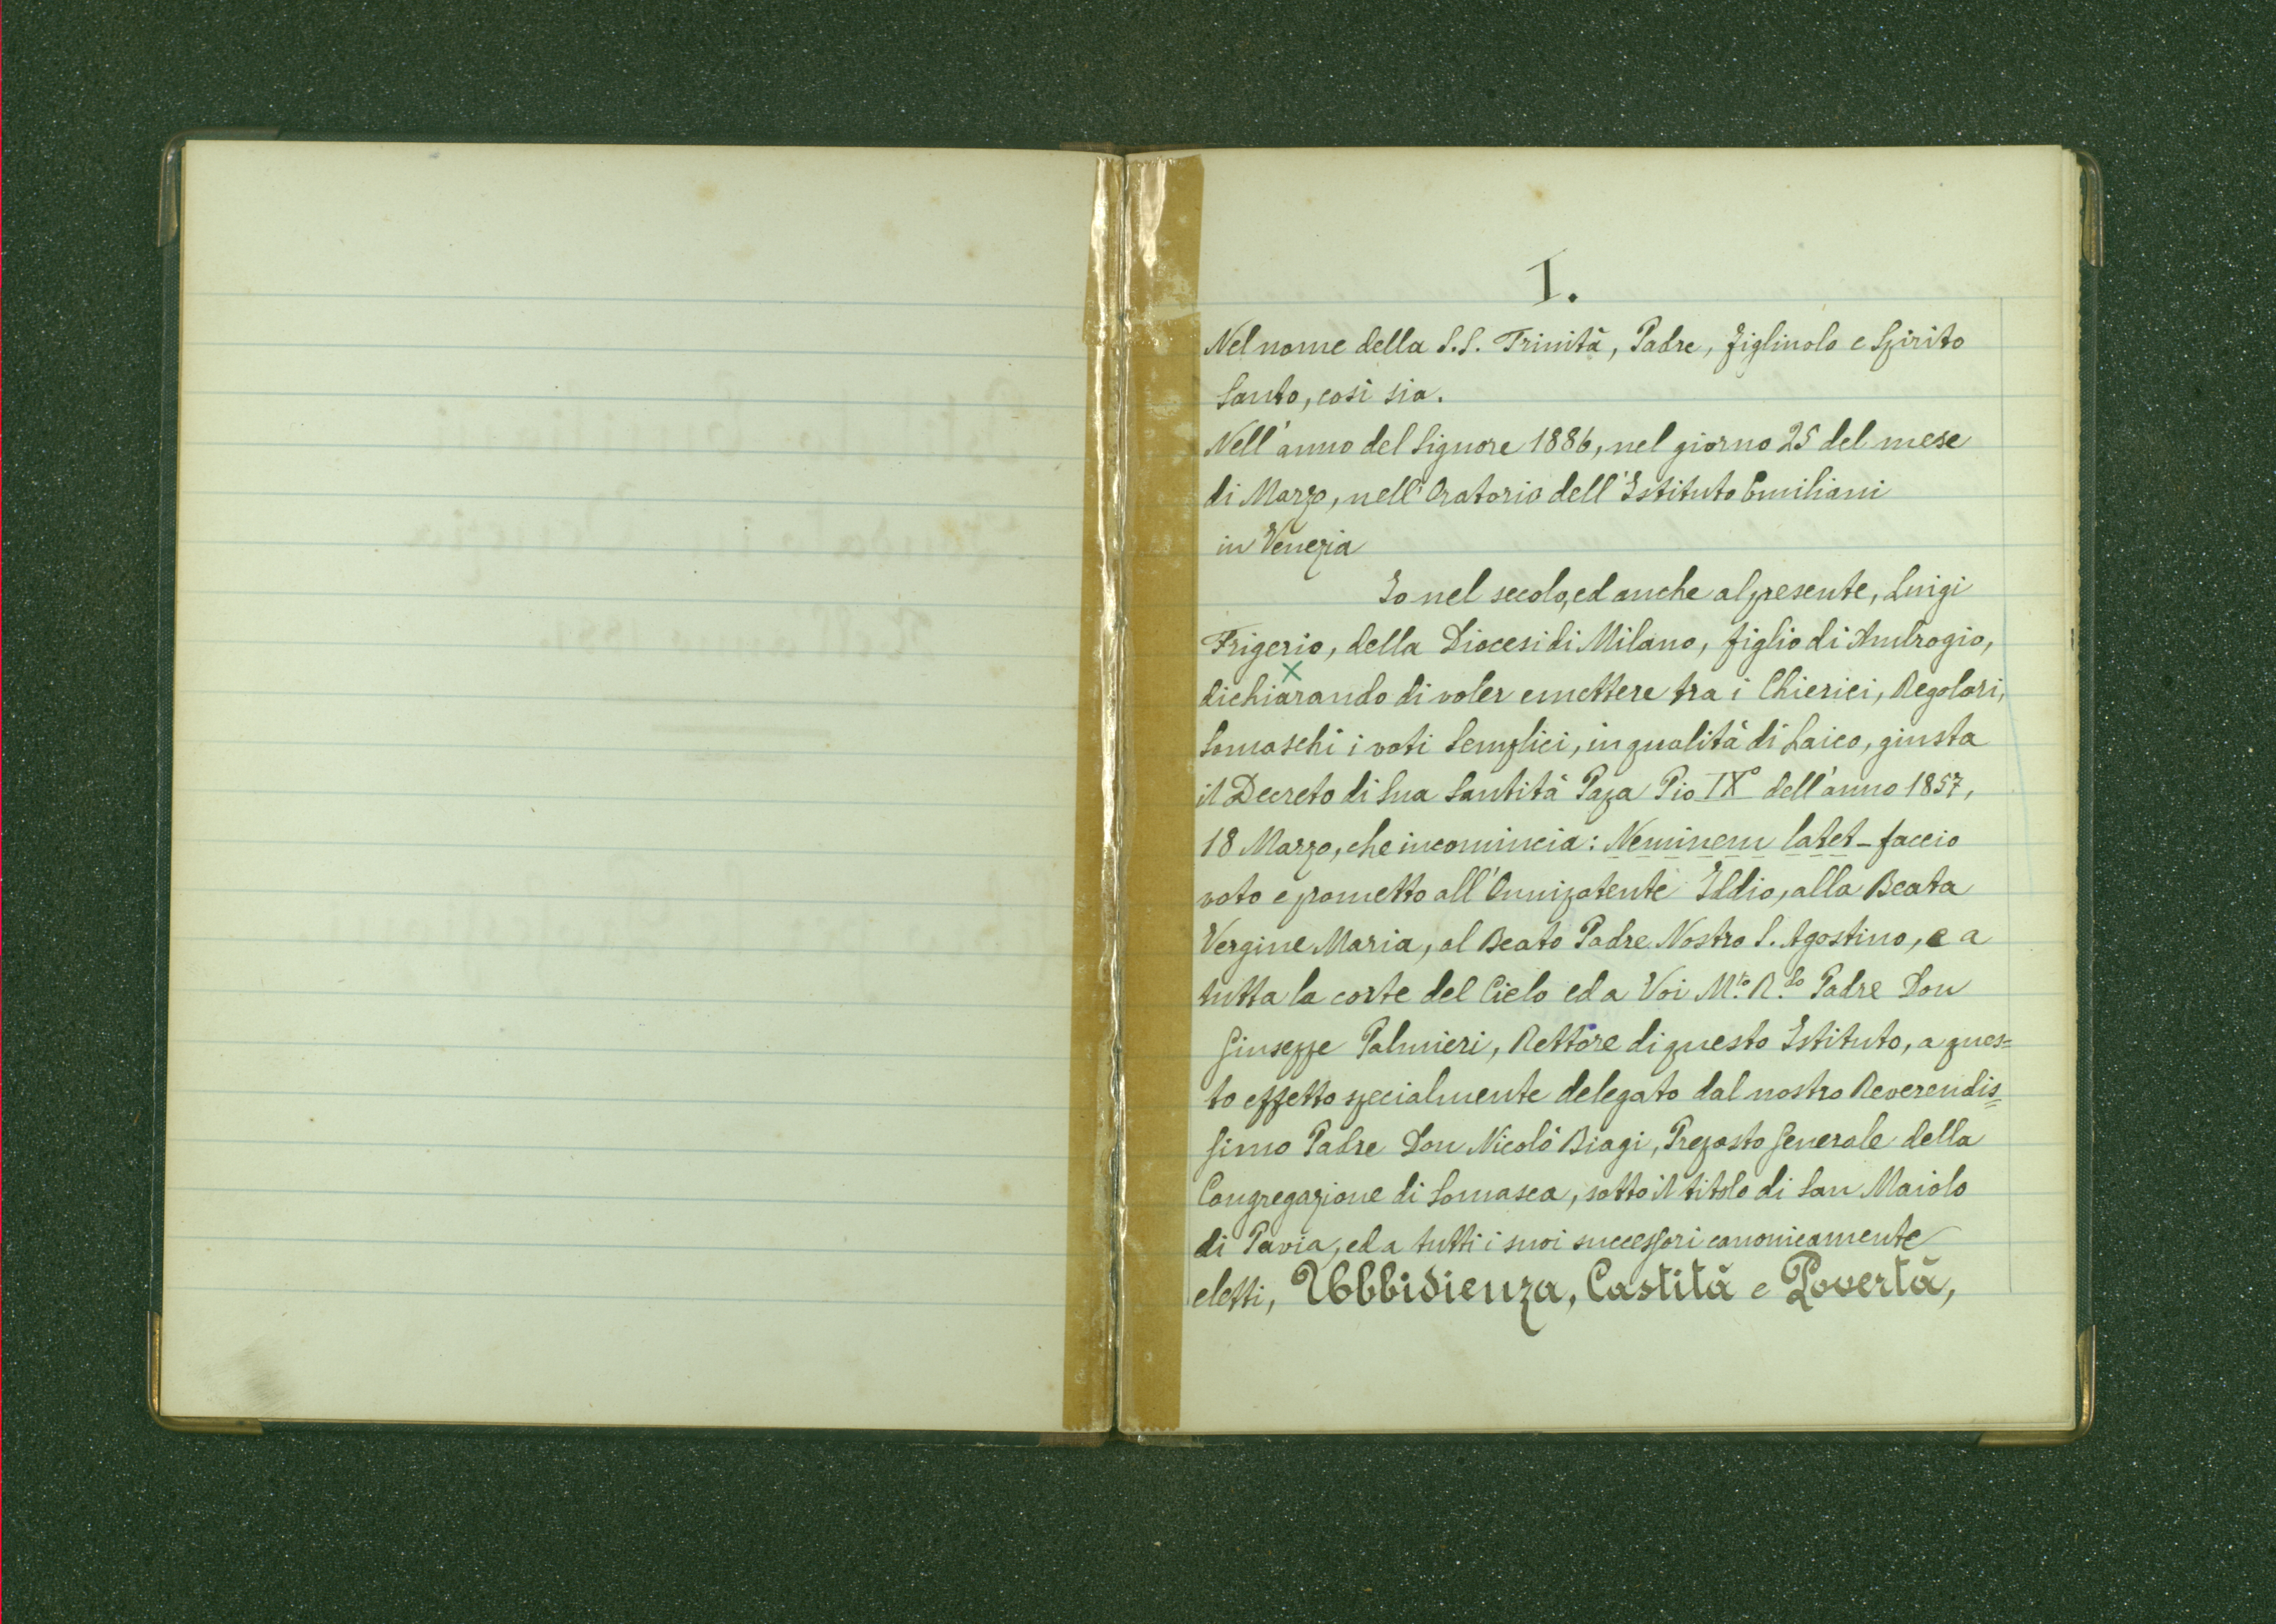 I.
Nel nome della S.S. Trinità, Padre, figliuolo e Spirito
Santo, così sia.
Nell'anno del Signore 1886, nel giorno 25 del mese
di Marzo, nell'Oratorio dell'Istituto Emiliani
in Venezia
Io nel secolo, ed anche al presente, Luigi
Frigerio, della Diocesi di Milano, figlio di Ambrogio,
dichiarando di voler emettere tra i Chierici, Regolari,
Somaschi i voti Semplici, in qualità di Laico, giusta
il Decreto di Sua Santità Papa Pio IXº dell'anno 1857,
18 Marzo, che incomincia: Neminem latet - faccio
voto e prometto all'Onnipotente Iddio, alla Beata
Vergine Maria, al Beato Padre Nostro S. Agostino, e a
tutta la corte del Cielo ed a Voi M.to R.do Padre Don
Giuseppe Palmieri, Rettore di questo Istituto, a ques=
to effetto specialmente delegato dal nostro Reverendis=
simo Padre Don Nicolò Biagi, Preposto Generale della
Congregazione di Somasca, sotto il titolo di San Maiolo
di Pavia, ed a tutti i suoi successori canonicamente
eletti, Ubbidienza, Castità e Povertà,